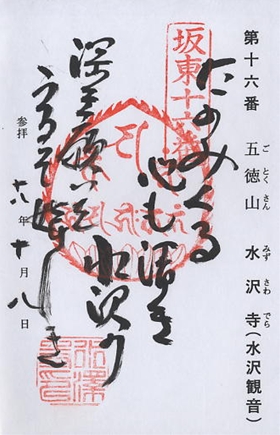 第十六番 五徳山 水沢寺(水沢観音)
ご とく さん みず さわ でら
坂東十六番
たのみくる
心も清き
水沢の
深き願いを
うるぞ嬉しき
参拝 十八年十月八日